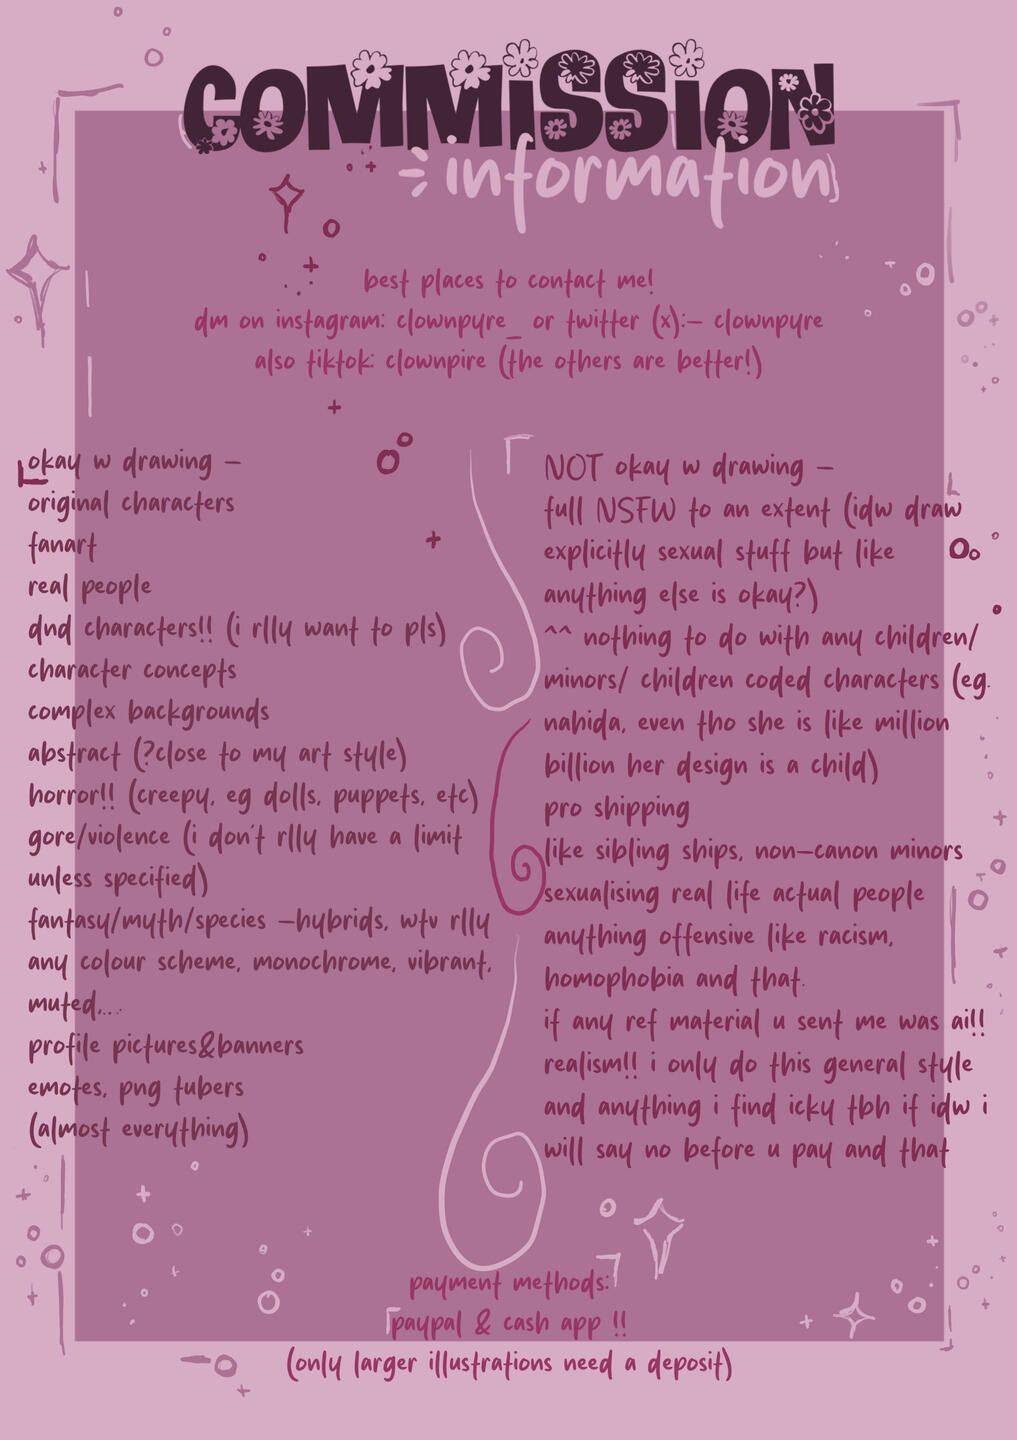 COMMISSION
information
best places to contact me!
dm on instagram: clownpyre_ or twitter (x):- clownpyre
also tiktok: clownpire (the others are better!)
okay w drawing -
original characters
fanart
real people
dnd characters!! (i rlly want to pls)
character concepts
complex backgrounds
abstract (?close to my art style)
horror!! (creepy, eg dolls, puppets, etc)
gore/violence (i don't rlly have a limit
unless specified)
fantasy/myth/species -hybrids, wtv rlly
any colour scheme, monochrome, vibrant,
muted,...
profile pictures&banners
emotes, png tubers
(almost everything)
NOT okay w drawing -
full NSFW to an extent (idw draw
explicitly sexual stuff but like
anything else is okay?)
^^ nothing to do with any children/
minors/ children coded characters (eg.
nahida, even tho she is like million
billion her design is a child)
pro shipping
like sibling ships, non-canon minors
sexualising real life actual people
anything offensive like racism,
homophobia and that.
if any ref material u sent me was ai!!
realism!! i only do this general style
and anything i find icky tbh if idw i
will say no before u pay and that
payment methods:
paypal & cash app !!
(only larger illustrations need a deposit)